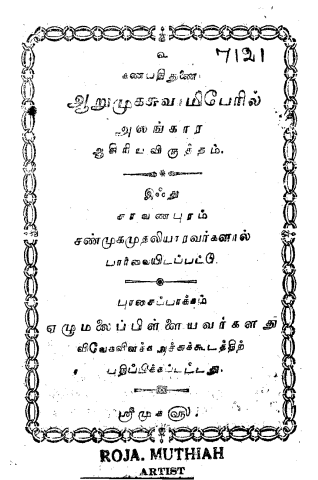 உ
7121
கணபதிதுணை
ஆறுமுகசுவாமிபேரில்
அலங்கார
ஆசிரியவிருத்தம்.
இஃது
சரவணபுரம்
சண்முகமுதலியாரவர்களால்
பார்வையிடப்பட்டு.
புரசைப்பாக்கம்
ஏழுமலைப்பிள்ளையவர்களது
விவேகவிளக்க அச்சுக்கூடத்திற்
பதிப்பிக்கப்பட்டது.
ஸ்ரீமுகஹு
ROJA. MUTHIAH
ARTIST